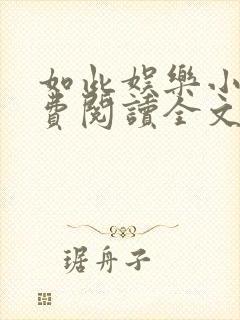 如此娱乐小
費閱讀全文
琚舟子